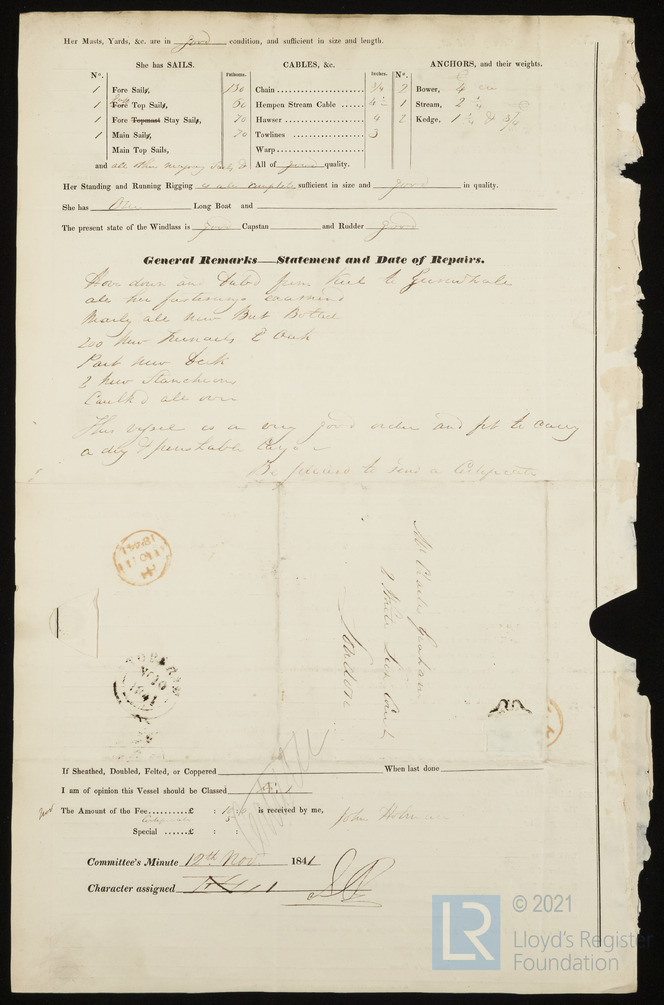 Her Masts, Yards, &c. are in good condition, and sufficient in size and length.
She has SAILS.
CABLES, &c.
ANCHORS, and their weights.
N°.
Fathoms.
Inches.
N°.
1 Fore Sails, 150 Chain 3/4 2 Bower, 4
1 Fore Top Sails, 60 Hempen Stream Cable 1 Stream, 2 1/4
1 Fore Topmast Stay Sails, 70 Hawser 4 2 Kedge, 1 1/4 & 3/4
1 Main Sails, 70 Towlines 3
Main Top Sails, Warp
and all other necessary Sails & All of good quality.
Her Standing and Running Rigging is also complete sufficient in size and good in quality.
She has One Long Boat and
The present state of the Windlass is good Capstan and Rudder good
General Remarks—Statement and Date of Repairs.
Hove down and from Keel to Gunwhale
all her fastenings examined
Nearly all new But Bolted
200 New Treenails E Oak
Part new Deck
2 New Stancheons
Caulk'd all over
This vessel is in very good order and fit to carry
a dry & perishable Cargo
Be please to send a Certificate
Mr Charles Graham
2 White Lion Court
London
1841
If Sheathed, Doubled, Felted, or Coppered When last done
I am of opinion this Vessel should be Classed
The Amount of the Fee £ : : is received by me,
John
Special £ : :
Committee's Minute 12th Nov. 1841
Character assigned
© 2021
LR
Lloyd's Register
Foundation